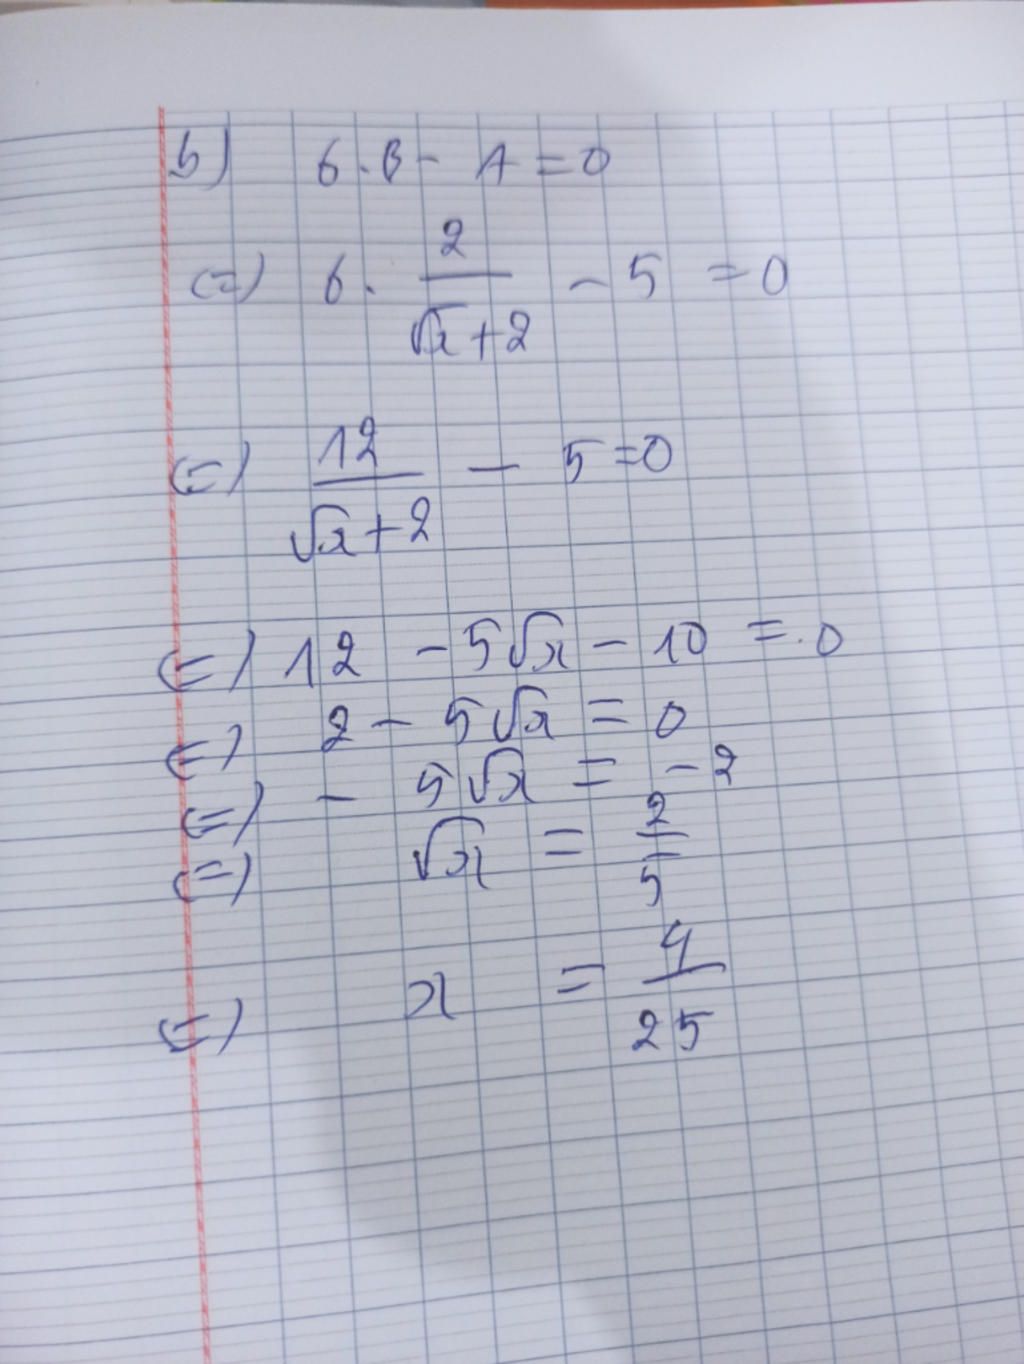 b) 6.B - A = 0
(=) 6. 2/(√x+2) - 5 = 0
(=) 12/(√x+2) - 5 = 0
(=) 12 - 5√x - 10 = 0
(=) 2 - 5√x = 0
(=) - 5√x = -2
(=) √x = 2/5
(=) x = 4/25